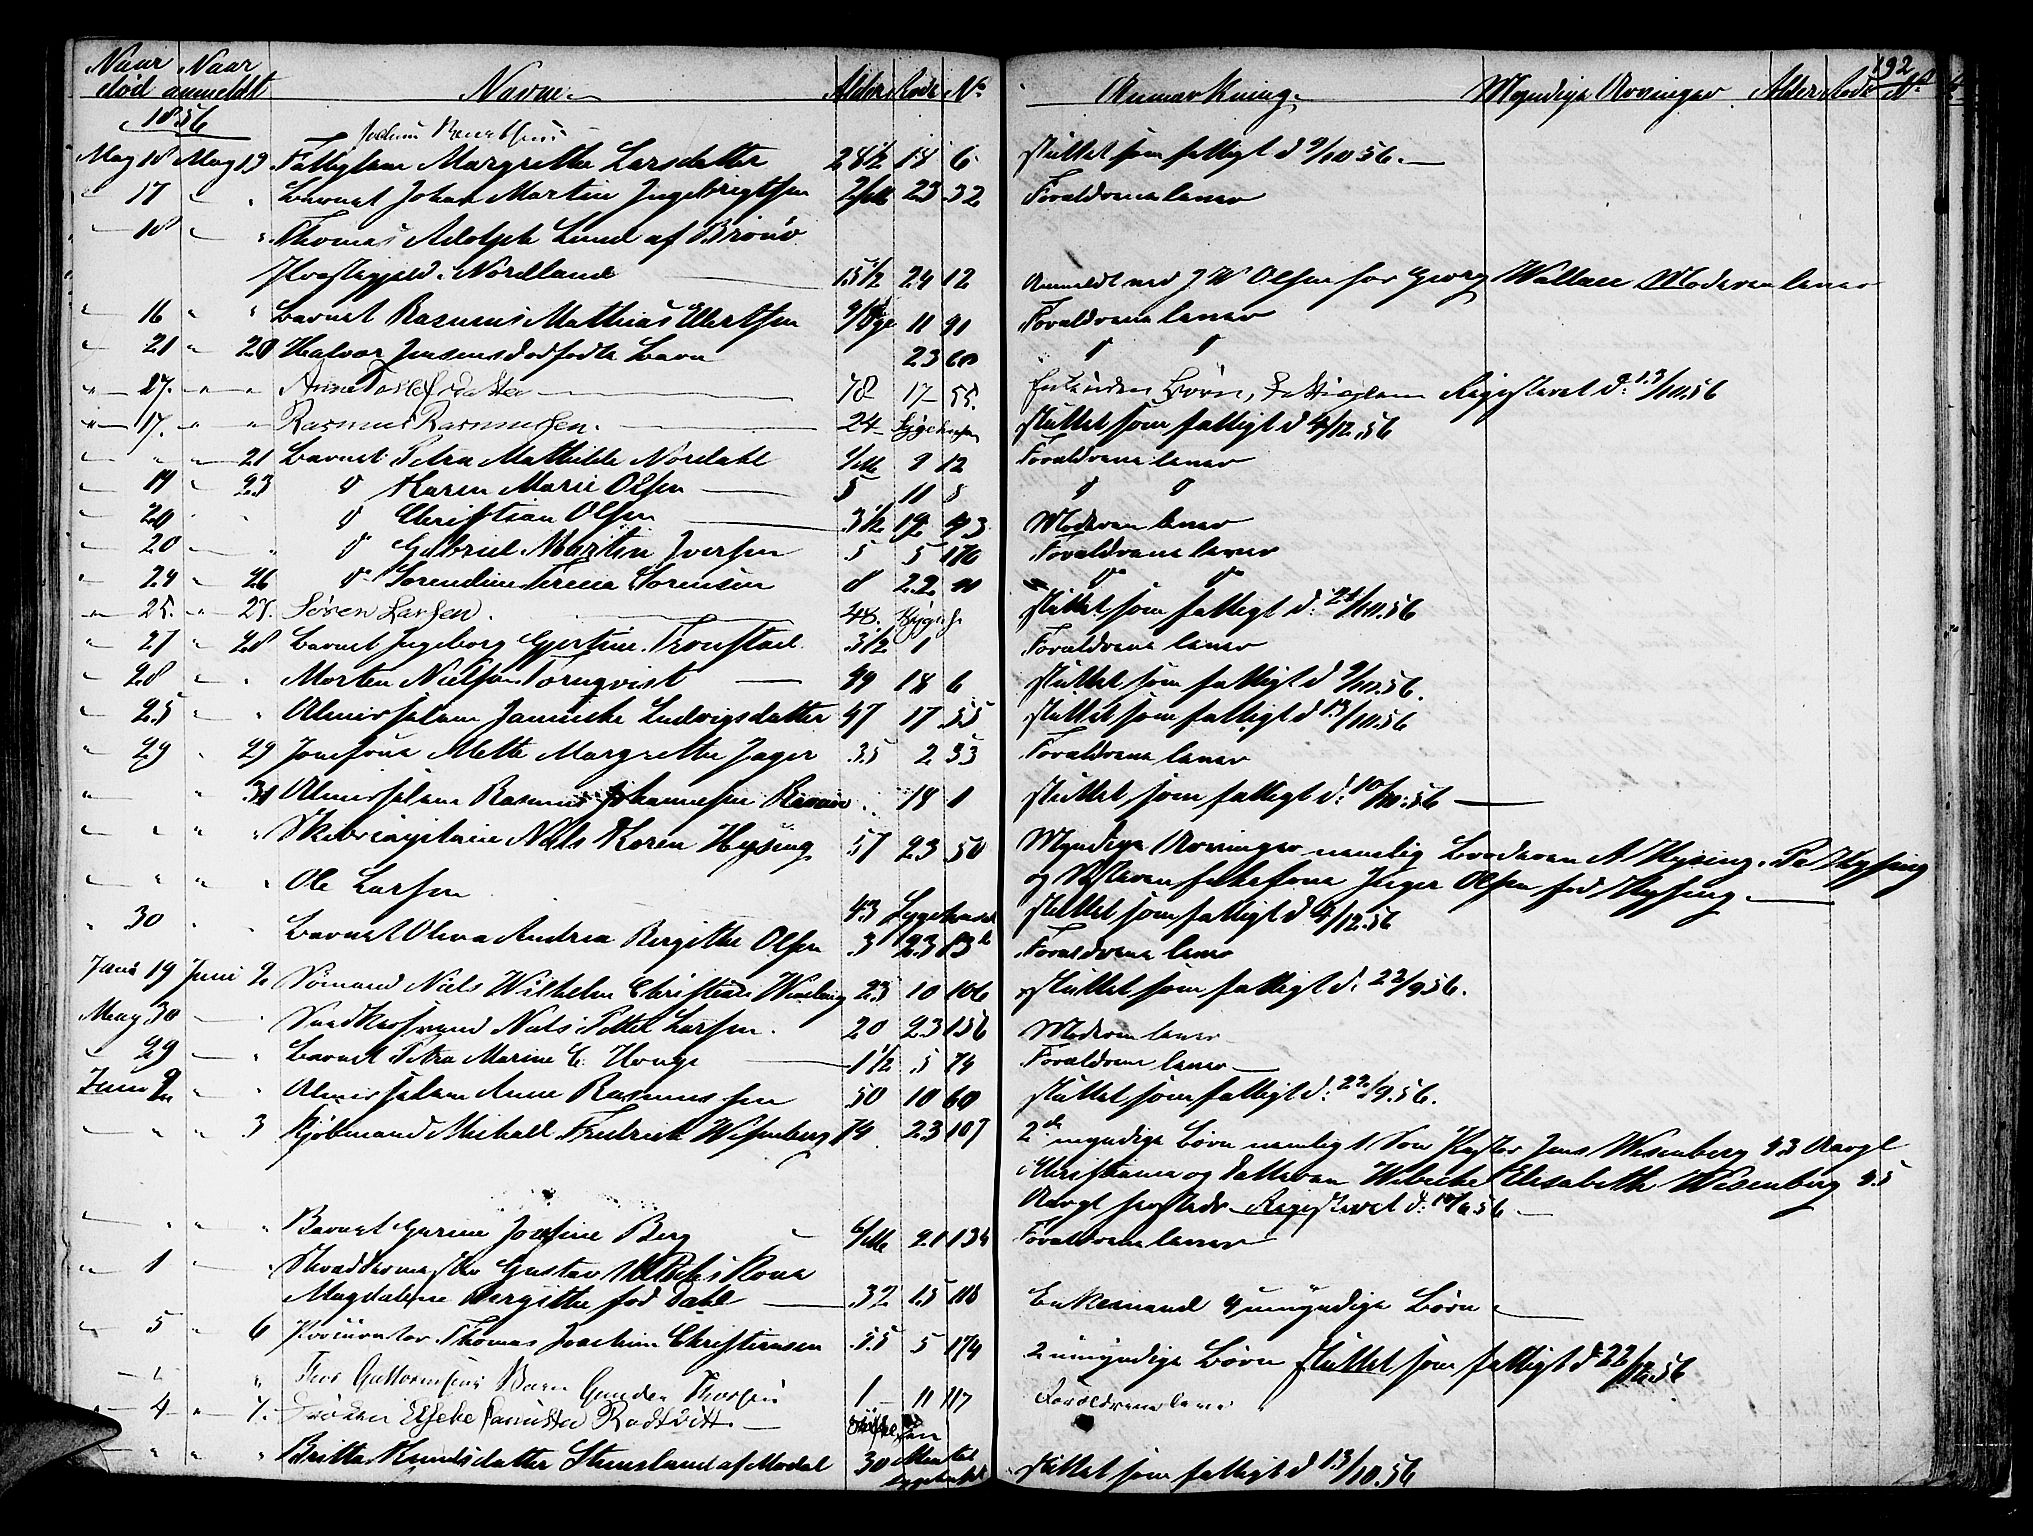 192
Naar død Naar anmeldt Navne Alder Rode No Anmærkning Myndige Arvinger Alder Rode No
1856
May 18 May 19 Fattiglem Margrethe Larsdatter 28 1/2 18 6 sluttet som fattigt d 9/10 56.
" 17 " " Barnet Johan Martin Ingebrigtsen 23 32 Forældrene lever
" 18 " " Thomas Adolph Lund af Brönö
Præstegjeld i Nordland 15 1/2 24 12 Anmeldt ved J W Olsen for Georg Wallace Moderen lever
" 16 " " Barnet Rasmus Mathias Ellertsen 11 91 Forældrene lever
" 21 " 20 Halvor Jensens dødfødte Barn 23 60 " "
" 17. " " Anne 78 17 55. Børn, Fattiglem Registeret d. 13/10.56
" 17. " " Rasmus Rasmussen. 24 Sygehuset sluttet som fattigt d 4/12.56
" " 21 Barnet Petra Mathilde Nordahl 9 12 Forældrene lever
" 19 " 23 " Karen Marie Olsen 5 11 5 " "
" 20 " " " Christian Olsen 3 1/2 19 Moderen lever
" 20 " " " Gabriel Martin Iversen 5 5 176 Forældrene lever
" 24 " 26 " Sorendine Serena Sörensen 8 22 " "
" 25. " 27. Sören Larsen. 48. Sygeh. sluttet som fattigt d. 21/10.56
" 27 " 28 Barnet Ingeborg Gjertine Tronstad 3 1/2 1 Forældrene lever
" 28 " " Morten Nielsen Tornqvist 49 18 6 sluttet som fattigt d 9/10.56.
" 25 " " Almisselem Jannicke Ludvigsdatter 47 17 55 sluttet som fattigt d 13/10.56
" 29 " 29 Jomfrue Mette Margrethe Jager 35 2 33 Forældrene lever
" " 31 Almisselem Rasmus Johannesen 18 1 sluttet som fattigt d. 10/10.56
" " " Skibscapitaine Niels Koren Hysing 57 23 50 Myndige Arvinger nemlig Broderen A Hysing, P. Hysing
og Søsteren Jager Olsen fød Hysing
" " " Ole Larsen 43 Sygehuset sluttet som fattigt d 4/12.56
" 30 " " Barnet Olava Andrea Bergitte Olsen 3 23 Forældrene lever
Juni 19 Juni 2 Sömand Niels Wilhelm Christian 23 10 106 sluttet som fattigt d. 22/9 56.
May 30 " " Snedkersvend Niels Petter Larsen. 20 23 156 Moderen lever
" 29 " " Barnet Petra Marine C. Houge 1 1/2 5 74 Forældrene lever
Juni 2 " " Almisselem Anne Rasmussen 50 10 60 sluttet som fattigt d. 22/9.56.
" " 3 Kjöbmand Michael Fredrick Wesenberg 74 23 107 2de myndige Børn nemlig 1 Søn Jens Wesenberg 43 Aar gl
Christiania og Datteren Wibecke Elisabeth Wesenberg 45
Aar gl hersteds Registeret d. 56
" " " Barnet Gurine Josefine Berg 6/Md 21 134 Forældrene lever
" 1 " " Skræddermester Gustav Kone
Magdalene Bergitte fød Dahl 32 15 118 Enkemand 4 umyndige Børn
" 5 " 6 Procurator Thomas Joachim Christensen 55 5 174 2 umyndige Børn sluttet som fattigt d 22/12.56
" " " Thor Guttormsens Barn Gunder Thorsen 1 11 117 Forældrene lever
" 4 " 7. Elsebe Rodtvitt
" " " Britta Knudsdatter Stensland af Modal 30 Mental sygehuset sluttet som fattigt d 13/10.56